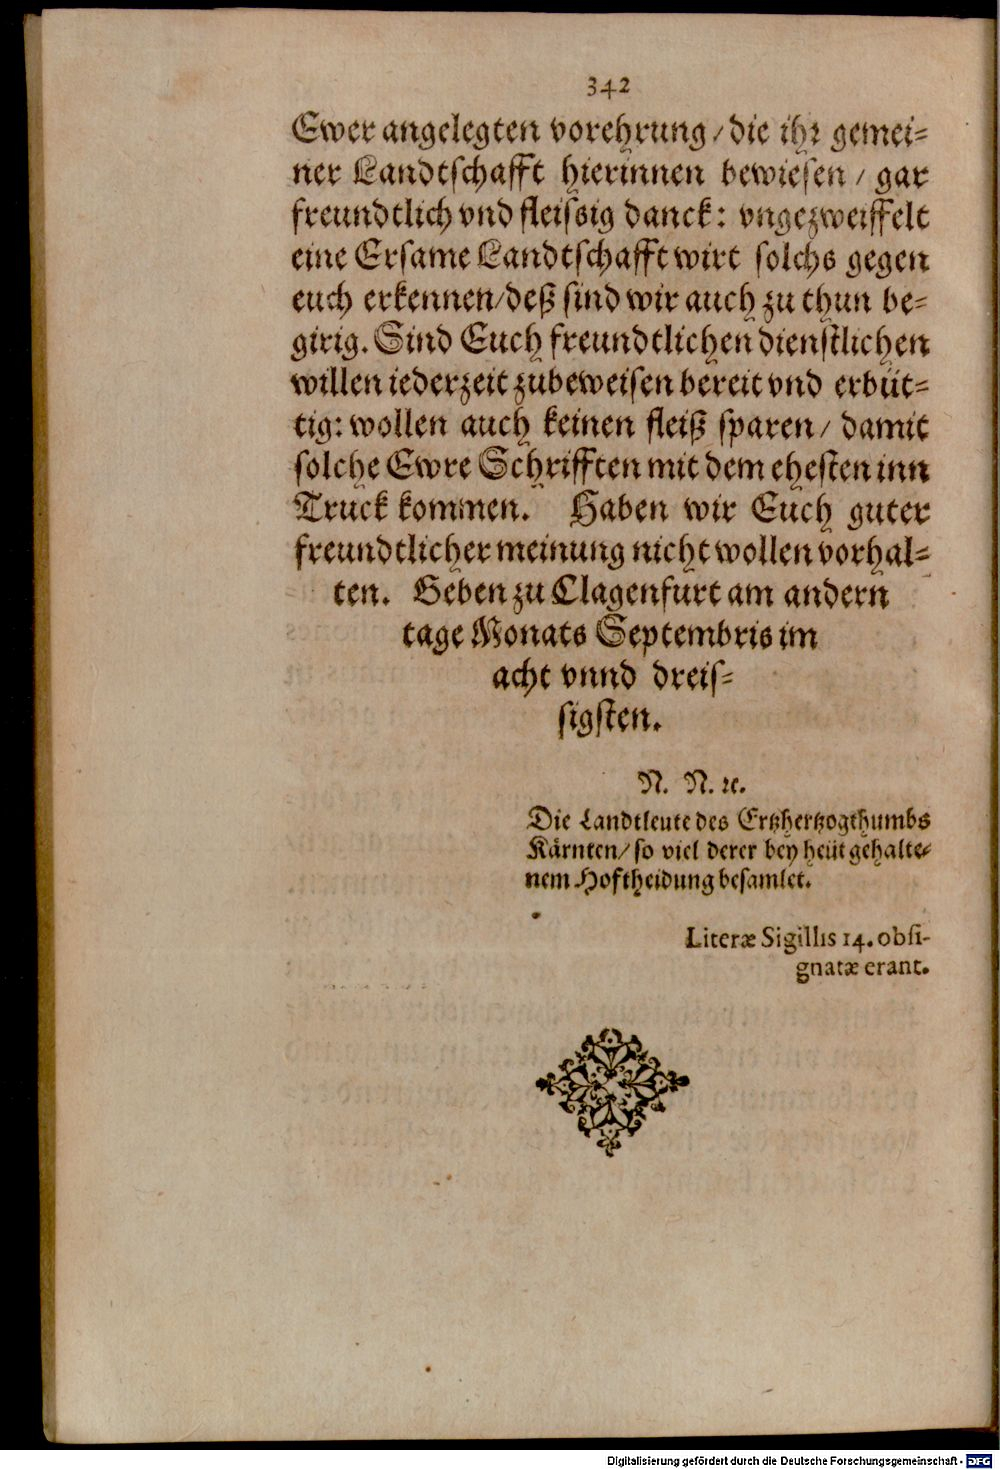 342
Ewer angelegten vorehrung / die ihr gemei-
ner Landtschafft hierinnen bewiesen / gar
freundtlich vnd fleissig danck: vngezweiffelt
eine Ersame Landtschafft wirt solchs gegen
euch erkennen/deß sind wir auch zu thun be-
girig. Sind Euch freundtlichen dienstlichen
willen iederzeit zubeweisen bereit vnd erbüt-
tig: wollen auch keinen fleiß sparen / damit
solche Ewre Schrifften mit dem ehesten inn
Truck kommen. Haben wir Euch guter
freundtlicher meinung nicht wollen vorhal-
ten. Geben zu Clagenfurt am andern
tage Monats Septembris im
acht vnnd dreis-
sigsten.
N. N. ꝛc.
Die Landtleute des Ertzhertzogthumbs
Kärnten/ so viel derer bey heüt gehalte-
nem Hoftheidung besamlet.
Literæ Sigillis 14. obsi-
gnatæ erant.
Digitalisierung gefördert durch die Deutsche Forschungsgemeinschaft - DFG